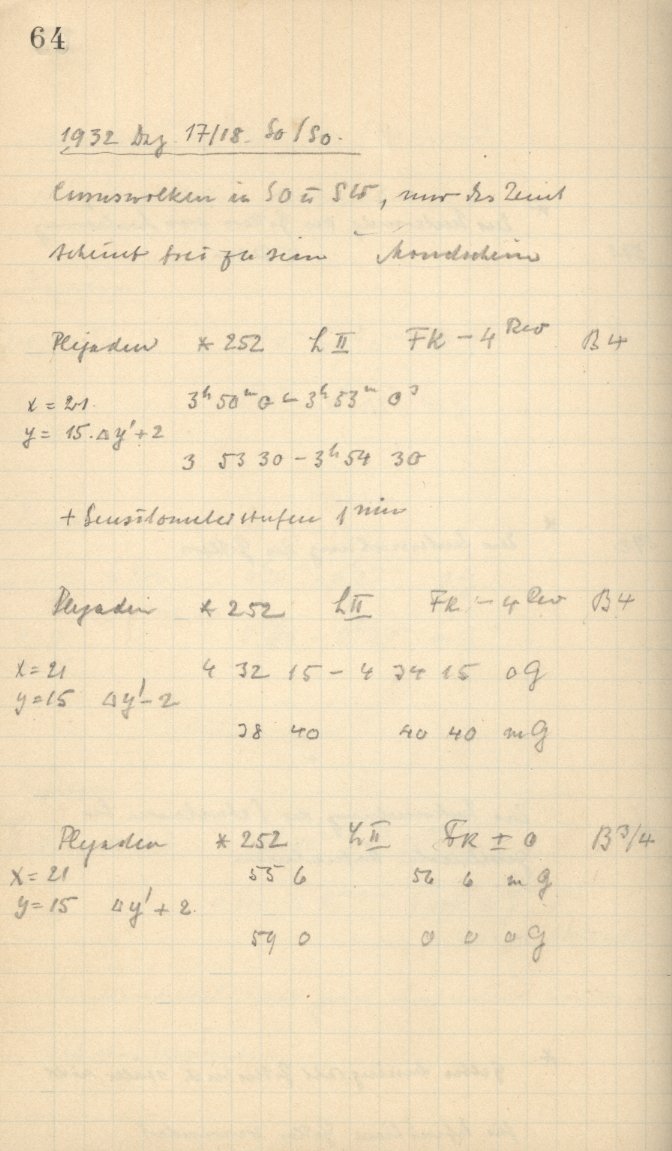 64
1932 Dez. 17/18. So/So.
Cirruswolken in SO u SW, nur das Zenit
scheint frei zu sein Mondschein
Plejaden * 252 L II FK - 4 Rev B 4
x = 21 3h 50m 0 - 3h 53m 0s
y = 15. Δy' + 2
3 53 30 - 3h 54 30
+ Sensitometerstufen 1 min
Plejaden * 252 L II FK - 4 Rev B 4
x = 21 4 32 15 - 4 34 15 oG
y = 15 Δy' - 2
38 40 40 40 mG
Plejaden * 252 L II FK ± 0 B 3/4
x = 21 55 6 56 6 mG
y = 15 Δy' + 2.
59 0 0 0 oG